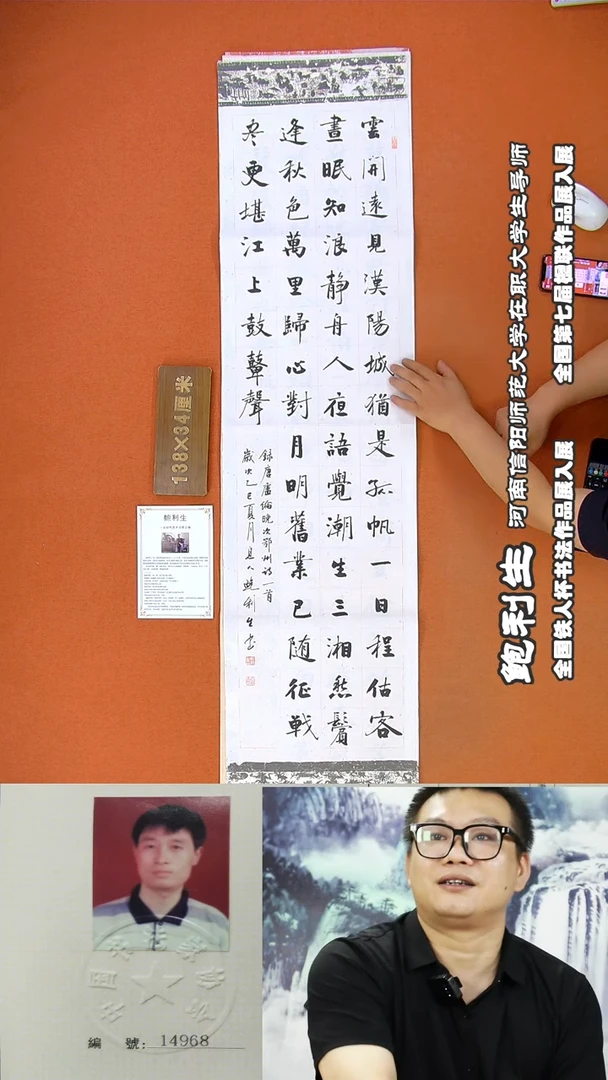 雲開遠見漢陽城猶是孤帆一日程估客
晝眠知浪静舟人夜語覺潮生三湘愁鬢
逢秋色萬里歸心對月明舊業已随征戰
尽更堪江上鼓鼙聲
録唐盧綸晚次鄂州詩一首
歲次乙巳夏月 鲍利生書
138×34厘米
鲍利生
鲍利生 河南信阳师范大学在职大学生导师
全国铁人杯书法作品展入展 全国第七届楹联作品展入展
編 號: 14968